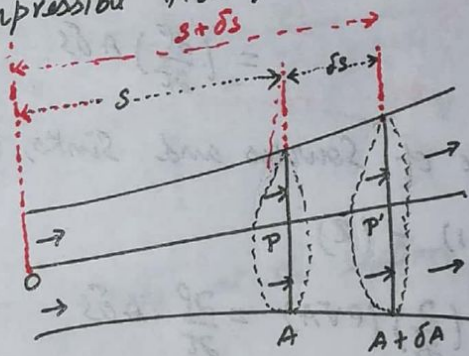 s+δs
s
δs
P
P'
O
A
A+δA